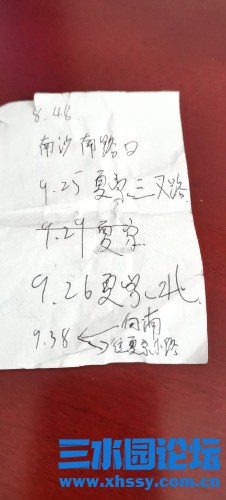 8.46
南沙南路口
9.25 夏家三叉路
9.29 夏家
9.26 夏家以北
9.38 向南
往夏家小路
三水园论坛
www.xhssy.com